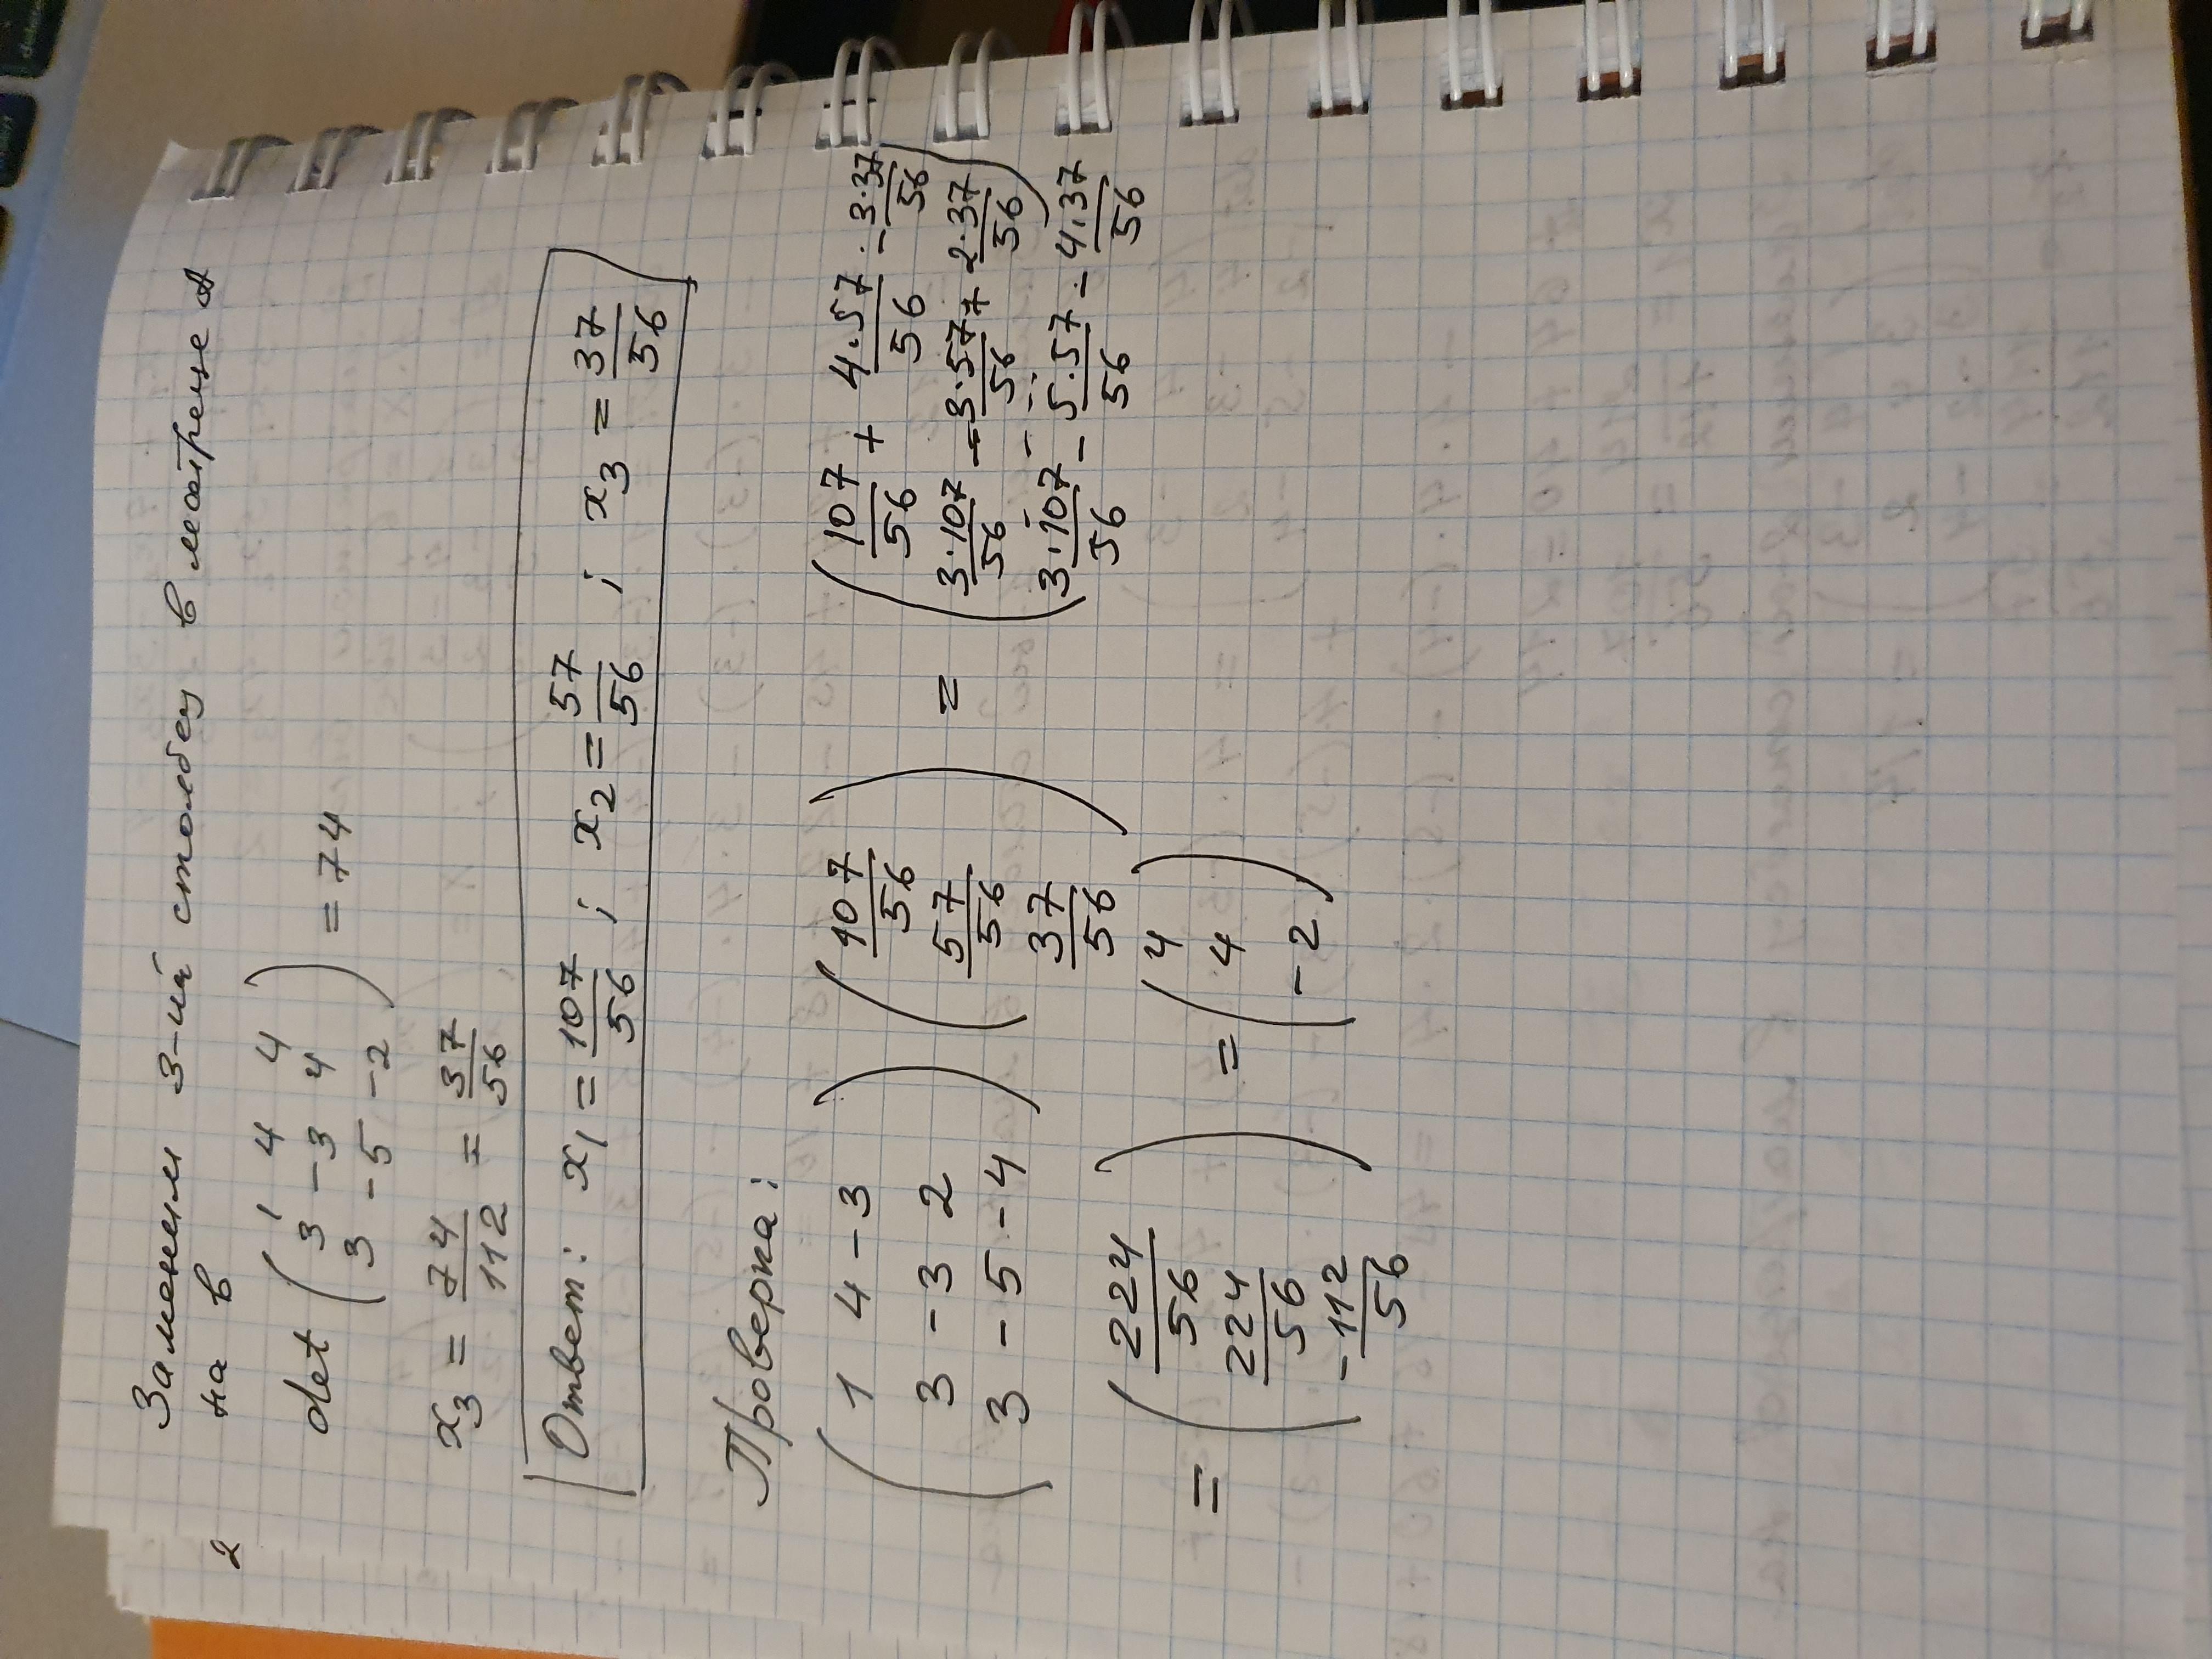 Заменим 3-ий столбец в матрице A
на в
2
det ( 1 4 4
3 -3 4
3 -5 -2 ) = 74
x₃ = 74/112 = 37/56
Ответ: x₁ = 107/56 ; x₂ = 57/56 ; x₃ = 37/56
Проверка:
( 1 4 -3
3 -3 2
3 -5 -4 ) ( 107/56
57/56
37/56 ) = ( 107/56 + 4·57/56 - 3·37/56
3·107/56 - 3·57/56 + 2·37/56
3·107/56 - 5·57/56 - 4·37/56 )
= ( 224/56
224/56
-112/56 ) = ( 4
4
-2 )